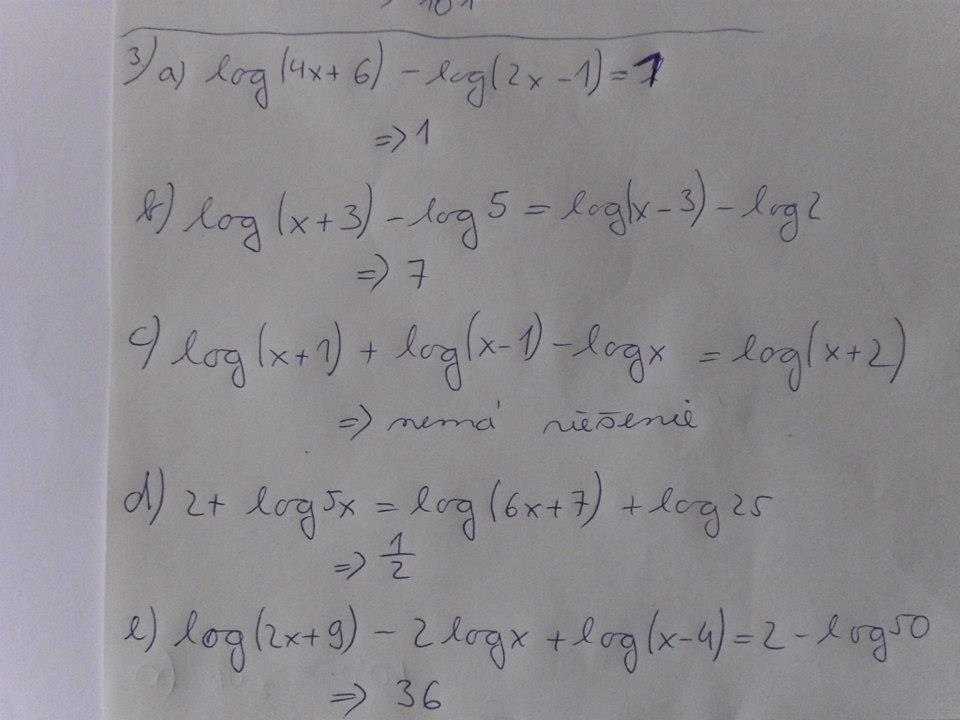 3) a) log(4x+6) - log(2x-1) = 1
=> 1
b) log(x+3) - log5 = log(x-3) - log2
=> 7
c) log(x+1) + log(x-1) - logx = log(x+2)
=> nemá riešenie
d) 2 + log5x = log(6x+7) + log25
=> 1/2
e) log(2x+9) - 2logx + log(x-4) = 2 - log50
=> 36